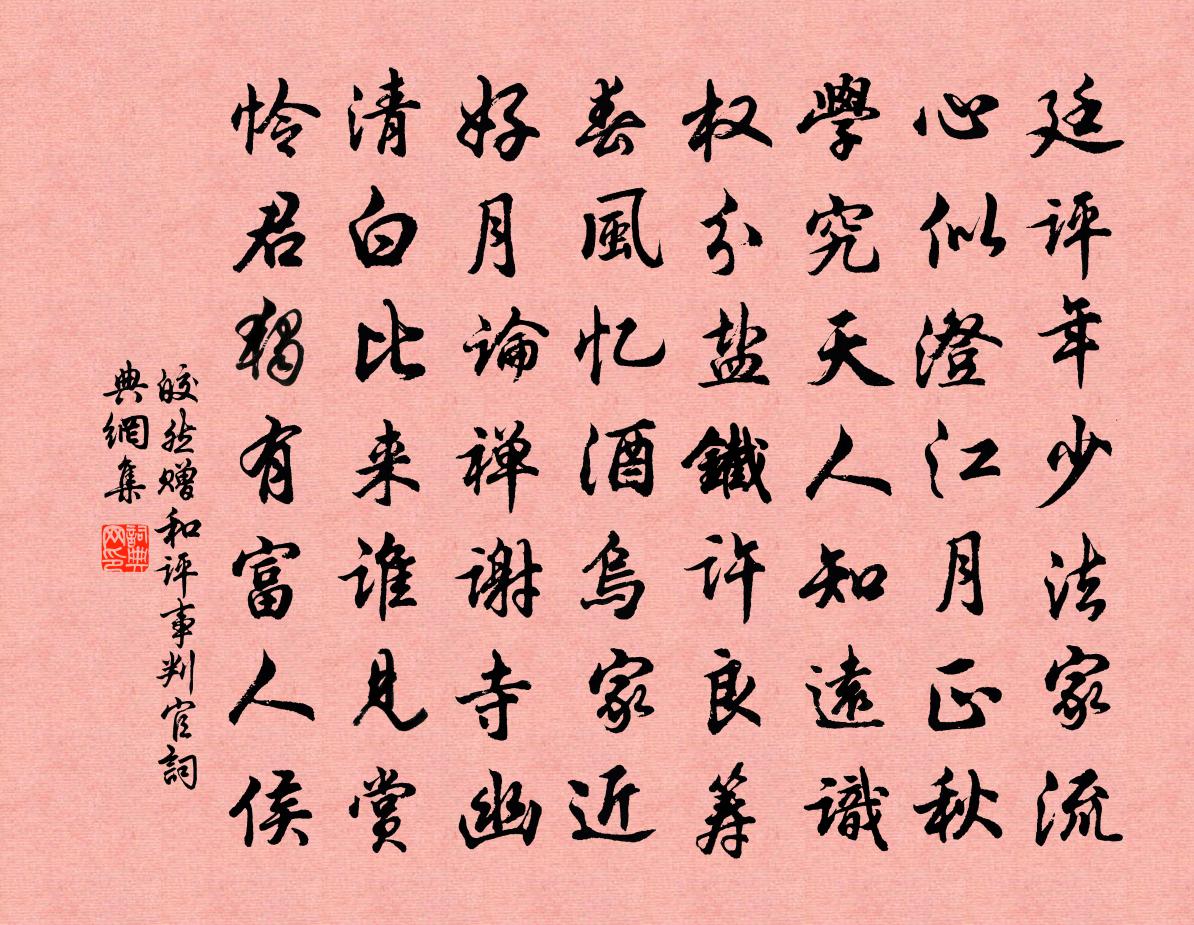 廷评年少法家流
心似澄江月正秋
學究天人知遠識
权分盐鐵许良筹
春風忆酒烏家近
好月論禅谢寺幽
清白比来谁見赏
怜君獨有富人侯
皎然赠和评事判官詞
典網集
詞典
网印